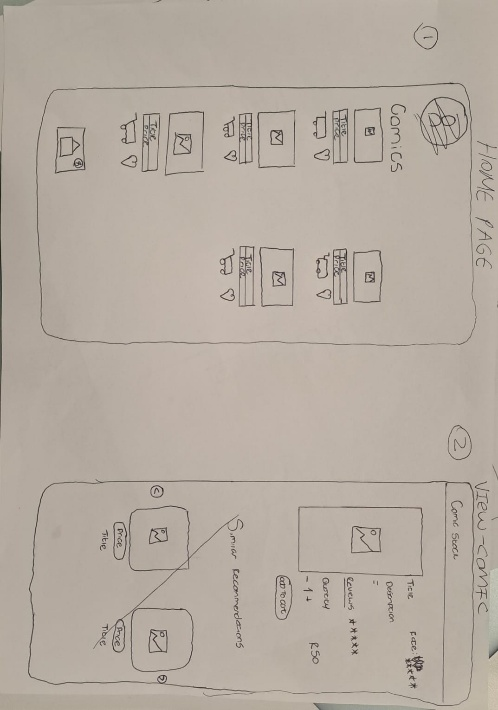 1
HOME PAGE
Comics
Title
Price
Title
Price
Title
Price
Title
Price
Title
Price
2
VIEW-COMIC
Comic Store
Title
Price:
****
Reviews ****
Quantity
- 1 +
R50
Add to cart
Similar Recommendations
Price
Title
Price
Title